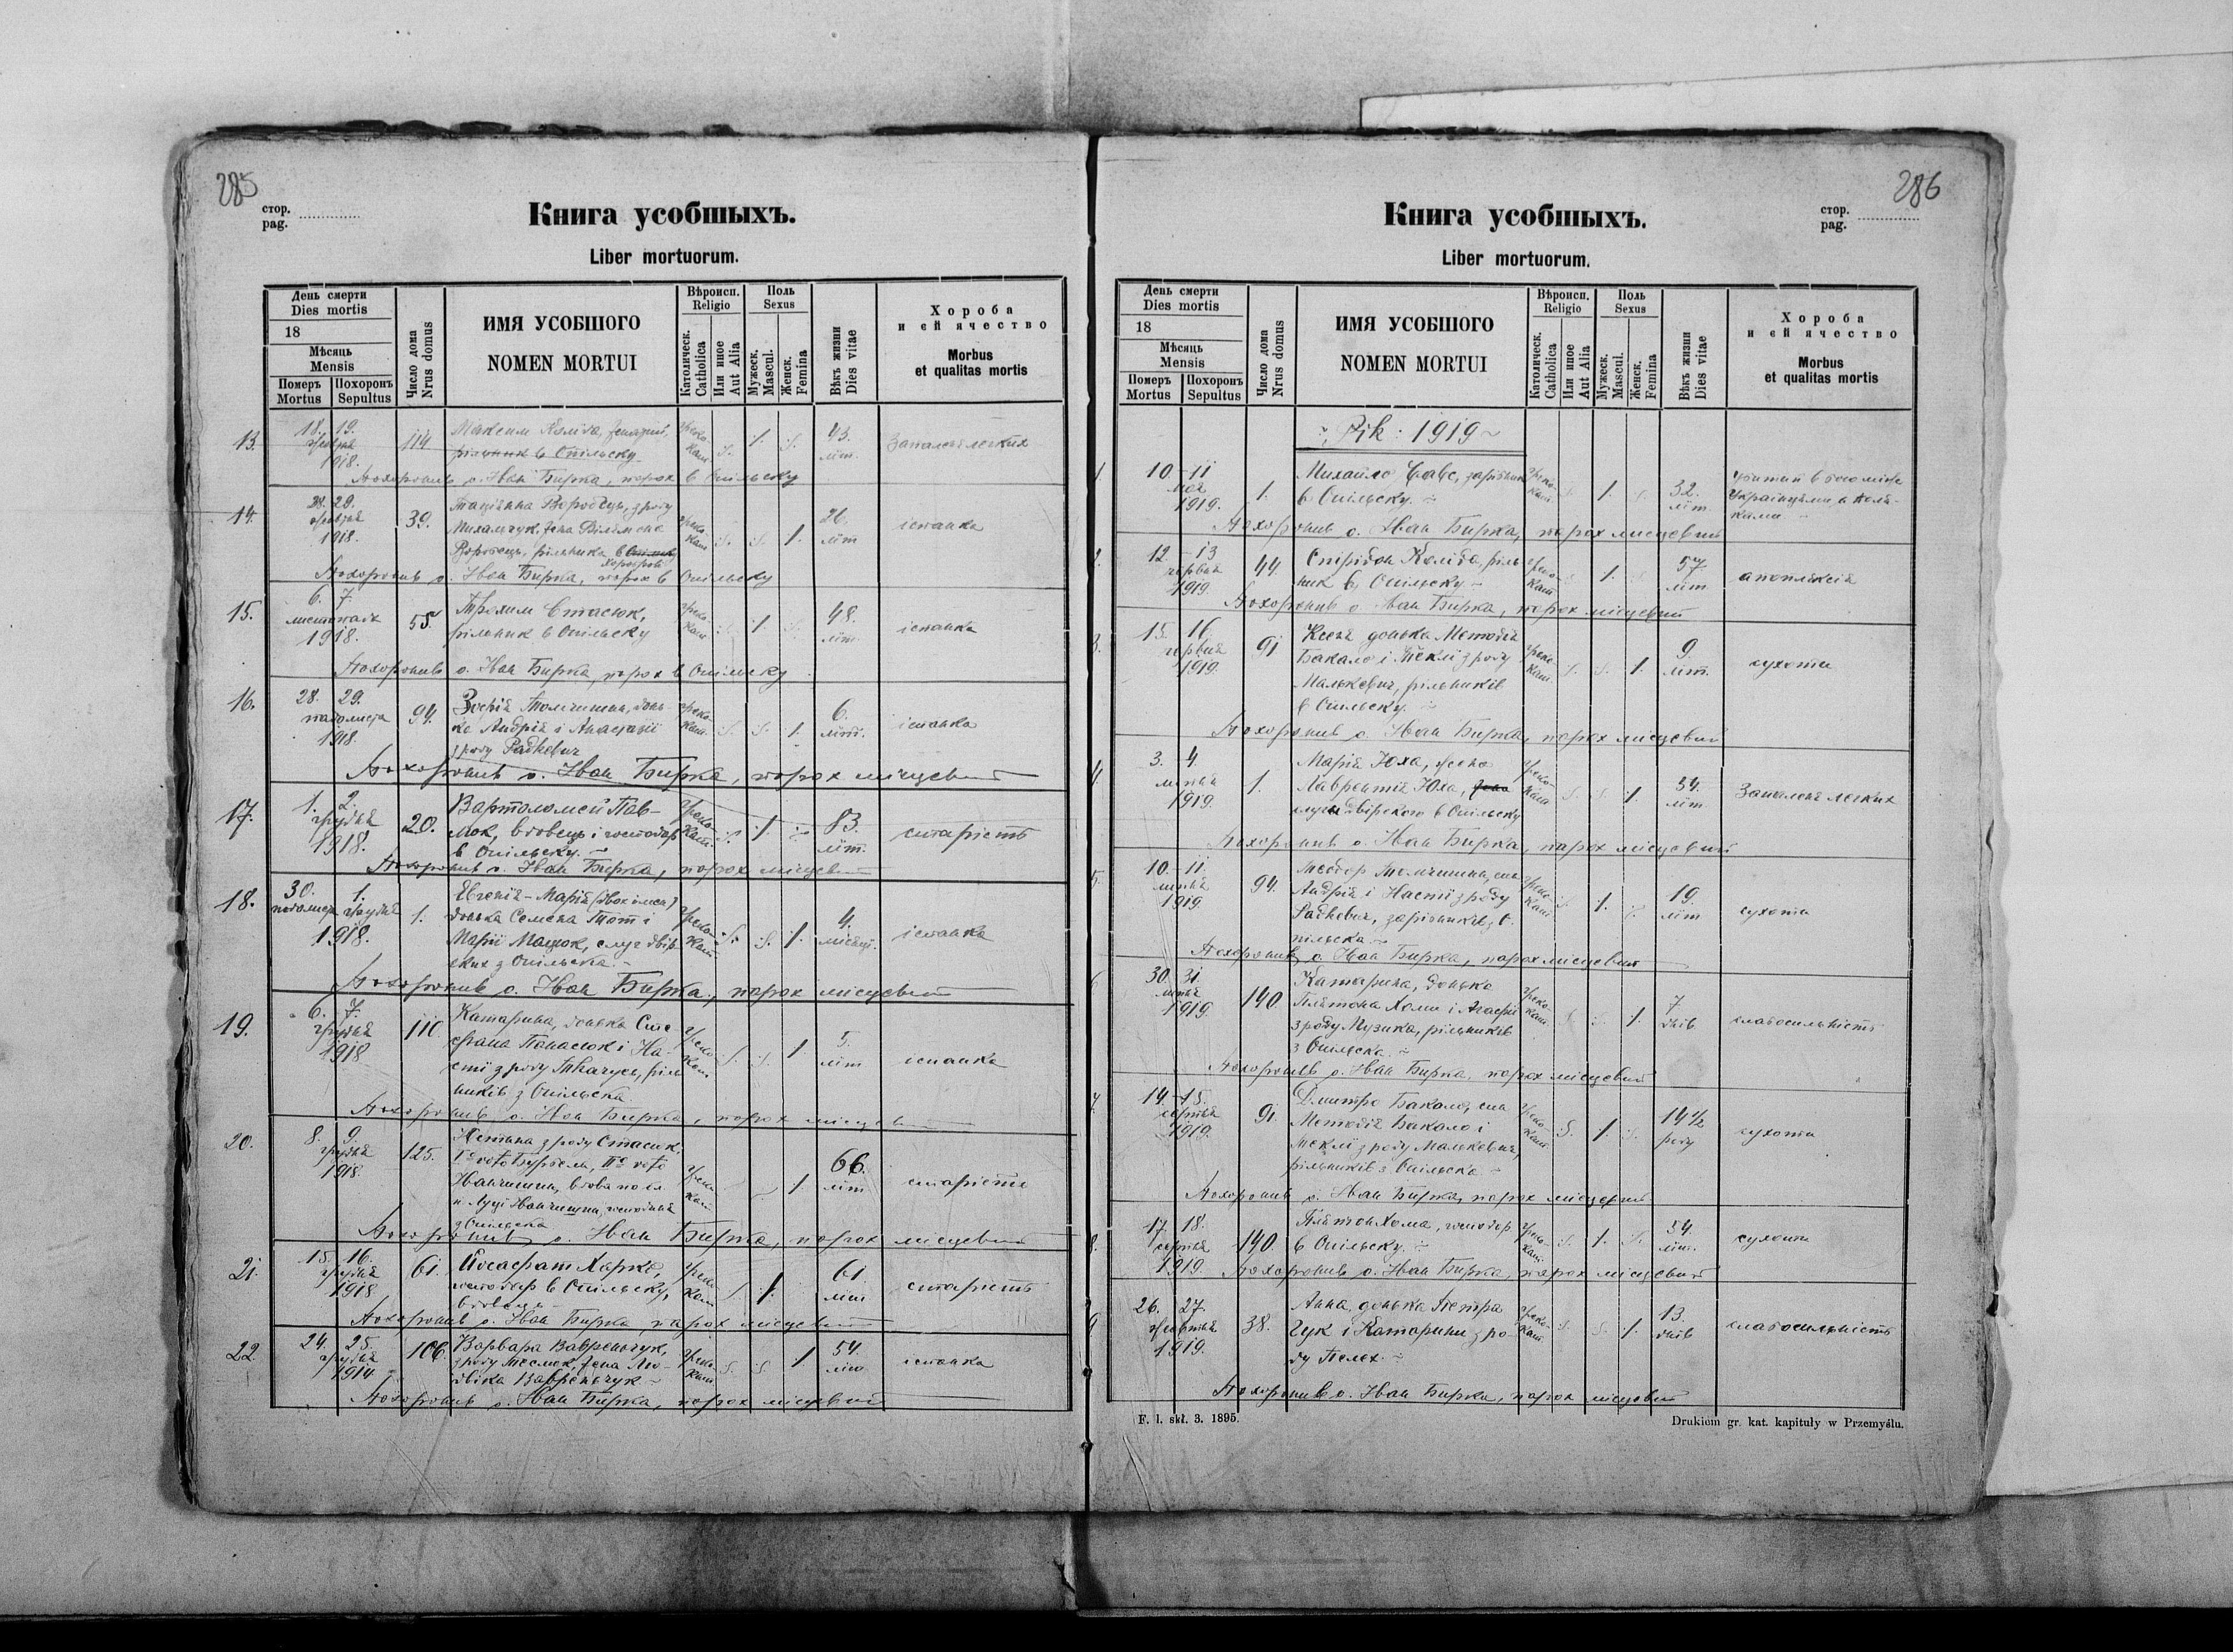 285
стор.
pag.
Книга усобшыхъ.
Liber mortuorum.
День смерти
Dies mortis
18
Мѣсяць
Mensis
Померъ
Mortus
Похоронъ
Sepultus
Число дома
Nrus domus
ИМЯ УСОБШОГО
NOMEN MORTUI
Вѣроисп.
Religio
Католическ.
Catholica
Или иное
Aut Alia
Поль
Sexus
Мужеск.
Mascul.
Женск.
Femina
Вѣкъ жизни
Dies vitae
Хороба
и ей ячество
Morbus
et qualitas mortis
13. 18. 19. 1918. 114 Максим Каліта, греко кат. 1. 43. літ. Запаленє легких
рільник в Опільську
Похоронив о. Иван Бирка, парох в Опільську
14. 28. 29. 1918. 39. Тацїянна з роду
Михальчук, греко кат. 1. 26. літ іспанка
рільника
Похоронив о. Иван Бирка, парох в Опільську
15. 6. 7. листопада 1918. 55. Трохим Стасюк, греко кат. 1. 48. літ. іспанка
рільник в Опільську
Похоронив о. Иван Бирка, парох в Опільську
16. 28. 29. падолиста 1918. 94. Зофія Томчишин, донь-
ка Андрія і Анастазії греко кат. 1. 6. літ. іспанка
з роду Радкевич
Похоронив о. Иван Бирка, парох місцевий
17. 1. 2. грудня 1918. 20. Вартоломей Пав-
люк, вдовець і господар греко кат. 1. 83. літ. старість
в Опільську.
Похоронив о. Иван Бирка, парох місцевий
18. 30. падолиста 1. грудня 1918. 1. Евгенія-Марія (двох імен)
донька Семена Тот і греко кат. 1. 4. місяці. іспанка
Марії Мацюк, слуг двір-
ских з Опільська.
Похоронив о. Иван Бирка, парох місцевий
19. 6. 7. грудня 1918 110. Катарина, донька Сте-
фана Панасюк і На- греко кат. 1. 5. літ іспанка
стї з роду Ткачук, ріль-
ників з Опільська.
Похоронив о. Иван Бирка, парох місцевий
20. 8. 9. грудня 1918. 125. з роду Стасюк,
Iº voto IIº voto греко кат. 1. 66. літ старість
Иванчишин, вдова по
Луцї Иванчишин,
з Опільська
Похоронив о. Иван Бирка, парох місцевий
21. 15. 16. грудня 1918. 61. Йосафат Харко, греко кат. 1. 61. літ старість
господар в Опільську,
вдовець
Похоронив о. Иван Бирка, парох місцевий
22. 24. 25. грудня 1914 106. Варвара Вавренчук,
з роду Теслюк, жена Лю- греко кат. 1. 54. літ іспанка
двіка Вавренчук
Похоронив о. Иван Бирка, парох місцевий
286
стор.
pag.
Книга усобшыхъ.
Liber mortuorum.
День смерти
Dies mortis
18
Мѣсяць
Mensis
Померъ
Mortus
Похоронъ
Sepultus
Число дома
Nrus domus
ИМЯ УСОБШОГО
NOMEN MORTUI
Вѣроисп.
Religio
Католическ.
Catholica
Или иное
Aut Alia
Поль
Sexus
Мужеск.
Mascul.
Женск.
Femina
Вѣкъ жизни
Dies vitae
Хороба
и ей ячество
Morbus
et qualitas mortis
Рік: 1919
1. 10 - 11 мая 1919. 1. Михайло зарібник греко- кат. 1. 32. літ убитий в бою між
в Опільську. Українцями а Поля-
ками
Похоронив о. Иван Бирка, парох місцевий
2. 12 - 13 червня 1919. 44. Спірідон Каліта, ріль-
ник в Опільську греко- кат. 1. 57 літ апоплєксія
Похоронив о. Иван Бирка, парох місцевий
3. 15. 16. червня 1919. 91 Ксеня донька Методія
Бакало і Теклї з роду греко- кат. 1. 9. літ. сухоти
Малькевич, рільників
в Опільську.
Похоронив о. Иван Бирка, парох місцевий
4. 3. 4. липня 1919. 1. Марія Юха, жена
Лаврентія Юха, греко- кат. 1. 34. літ Запаленє легких
слуги двірского в Опільську
Похоронив о. Иван Бирка, парох місцевий
5. 10. - 11. липня 1919 94. Теодор Томчишин, син
Андрія і Настї з роду греко- кат. 1. 19. літ сухоти
Радкевич, зарібників з О-
пільська.
Похоронив о. Иван Бирка, парох місцевий
6 30. 31. липня 1919. 140. Катарина, донька
Плятона Хоми і Агафії греко- кат. 1. 7 днів слабосильність
з роду Музика, рільників
з Опільска.
Похоронив о. Иван Бирка, парох місцевий
7. 14. - 15. серпня 1919. 91. Дмитро Бакало, син
Методія Бакало і греко- кат. 1. 14 1/2 року сухоти
Теклї з роду Малькевич,
рільників з Опільска
Похоронив о. Иван Бирка, парох місцевий
8. 17. 18. серпня 1919. 140. Плятон Хома, господар греко- кат. 1. 54. літ. сухоти
в Опільську.
Похоронив о. Иван Бирка, парох місцевий
9. 26. 27. жовтня 1919. 38. Анна, донька Петра
Гук і Катарини з ро- греко- кат. 1. 13. днів слабосильність
ду Пелех.
Похоронив о. Иван Бирка, парох місцевий
F. l. skł. 3. 1895.
Drukiem gr. kat. kapituły w Przemyślu.